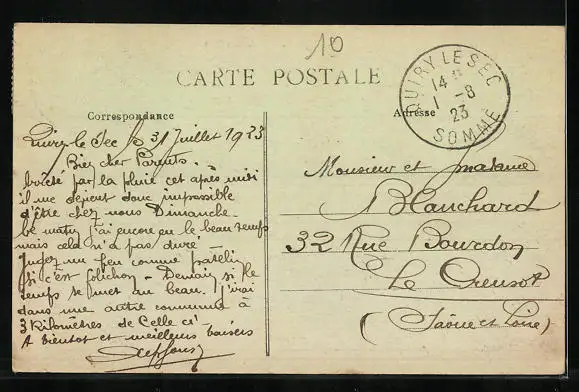 10
CARTE POSTALE
QUIRY LE SEC
14
1 - 8
23
SOMME
Correspondance
Adresse
Quiry-le-Sec le 31 Juillet 1923
Bien cher Parents.
par la pluie cet après midi
il me devient donc impossible
d'être chez nous Dimanche.
Ce matin j'ai encore eu le beau temps
mais cela n'a pas duré -
Jugez un peu comme
si c'est folichon - Demain si le
temps se met au beau. J'irai
dans une autre commune à
3 Kilomètres de Celle ci
A bientot et meilleurs baisers
Monsieur et madame
Blanchard
32 Rue Bourdon
Le Creusot
(Saône et Loire)